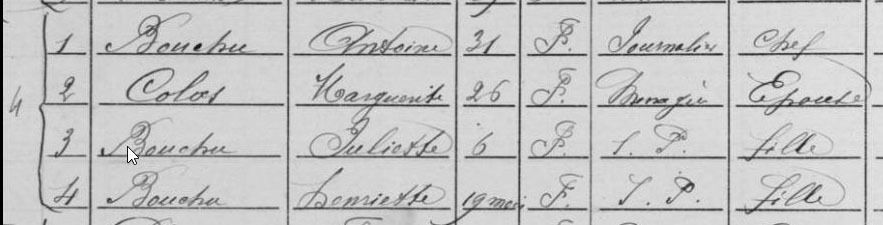 4
1 Bouchu Antoine 31 F. Journalier Chef
2 Colas Marguerite 26 F. Ménagère Epouse
3 Bouchu Juliette 6 F. S. P. fille
4 Bouchu Henriette 19 mois F. S. P. fille